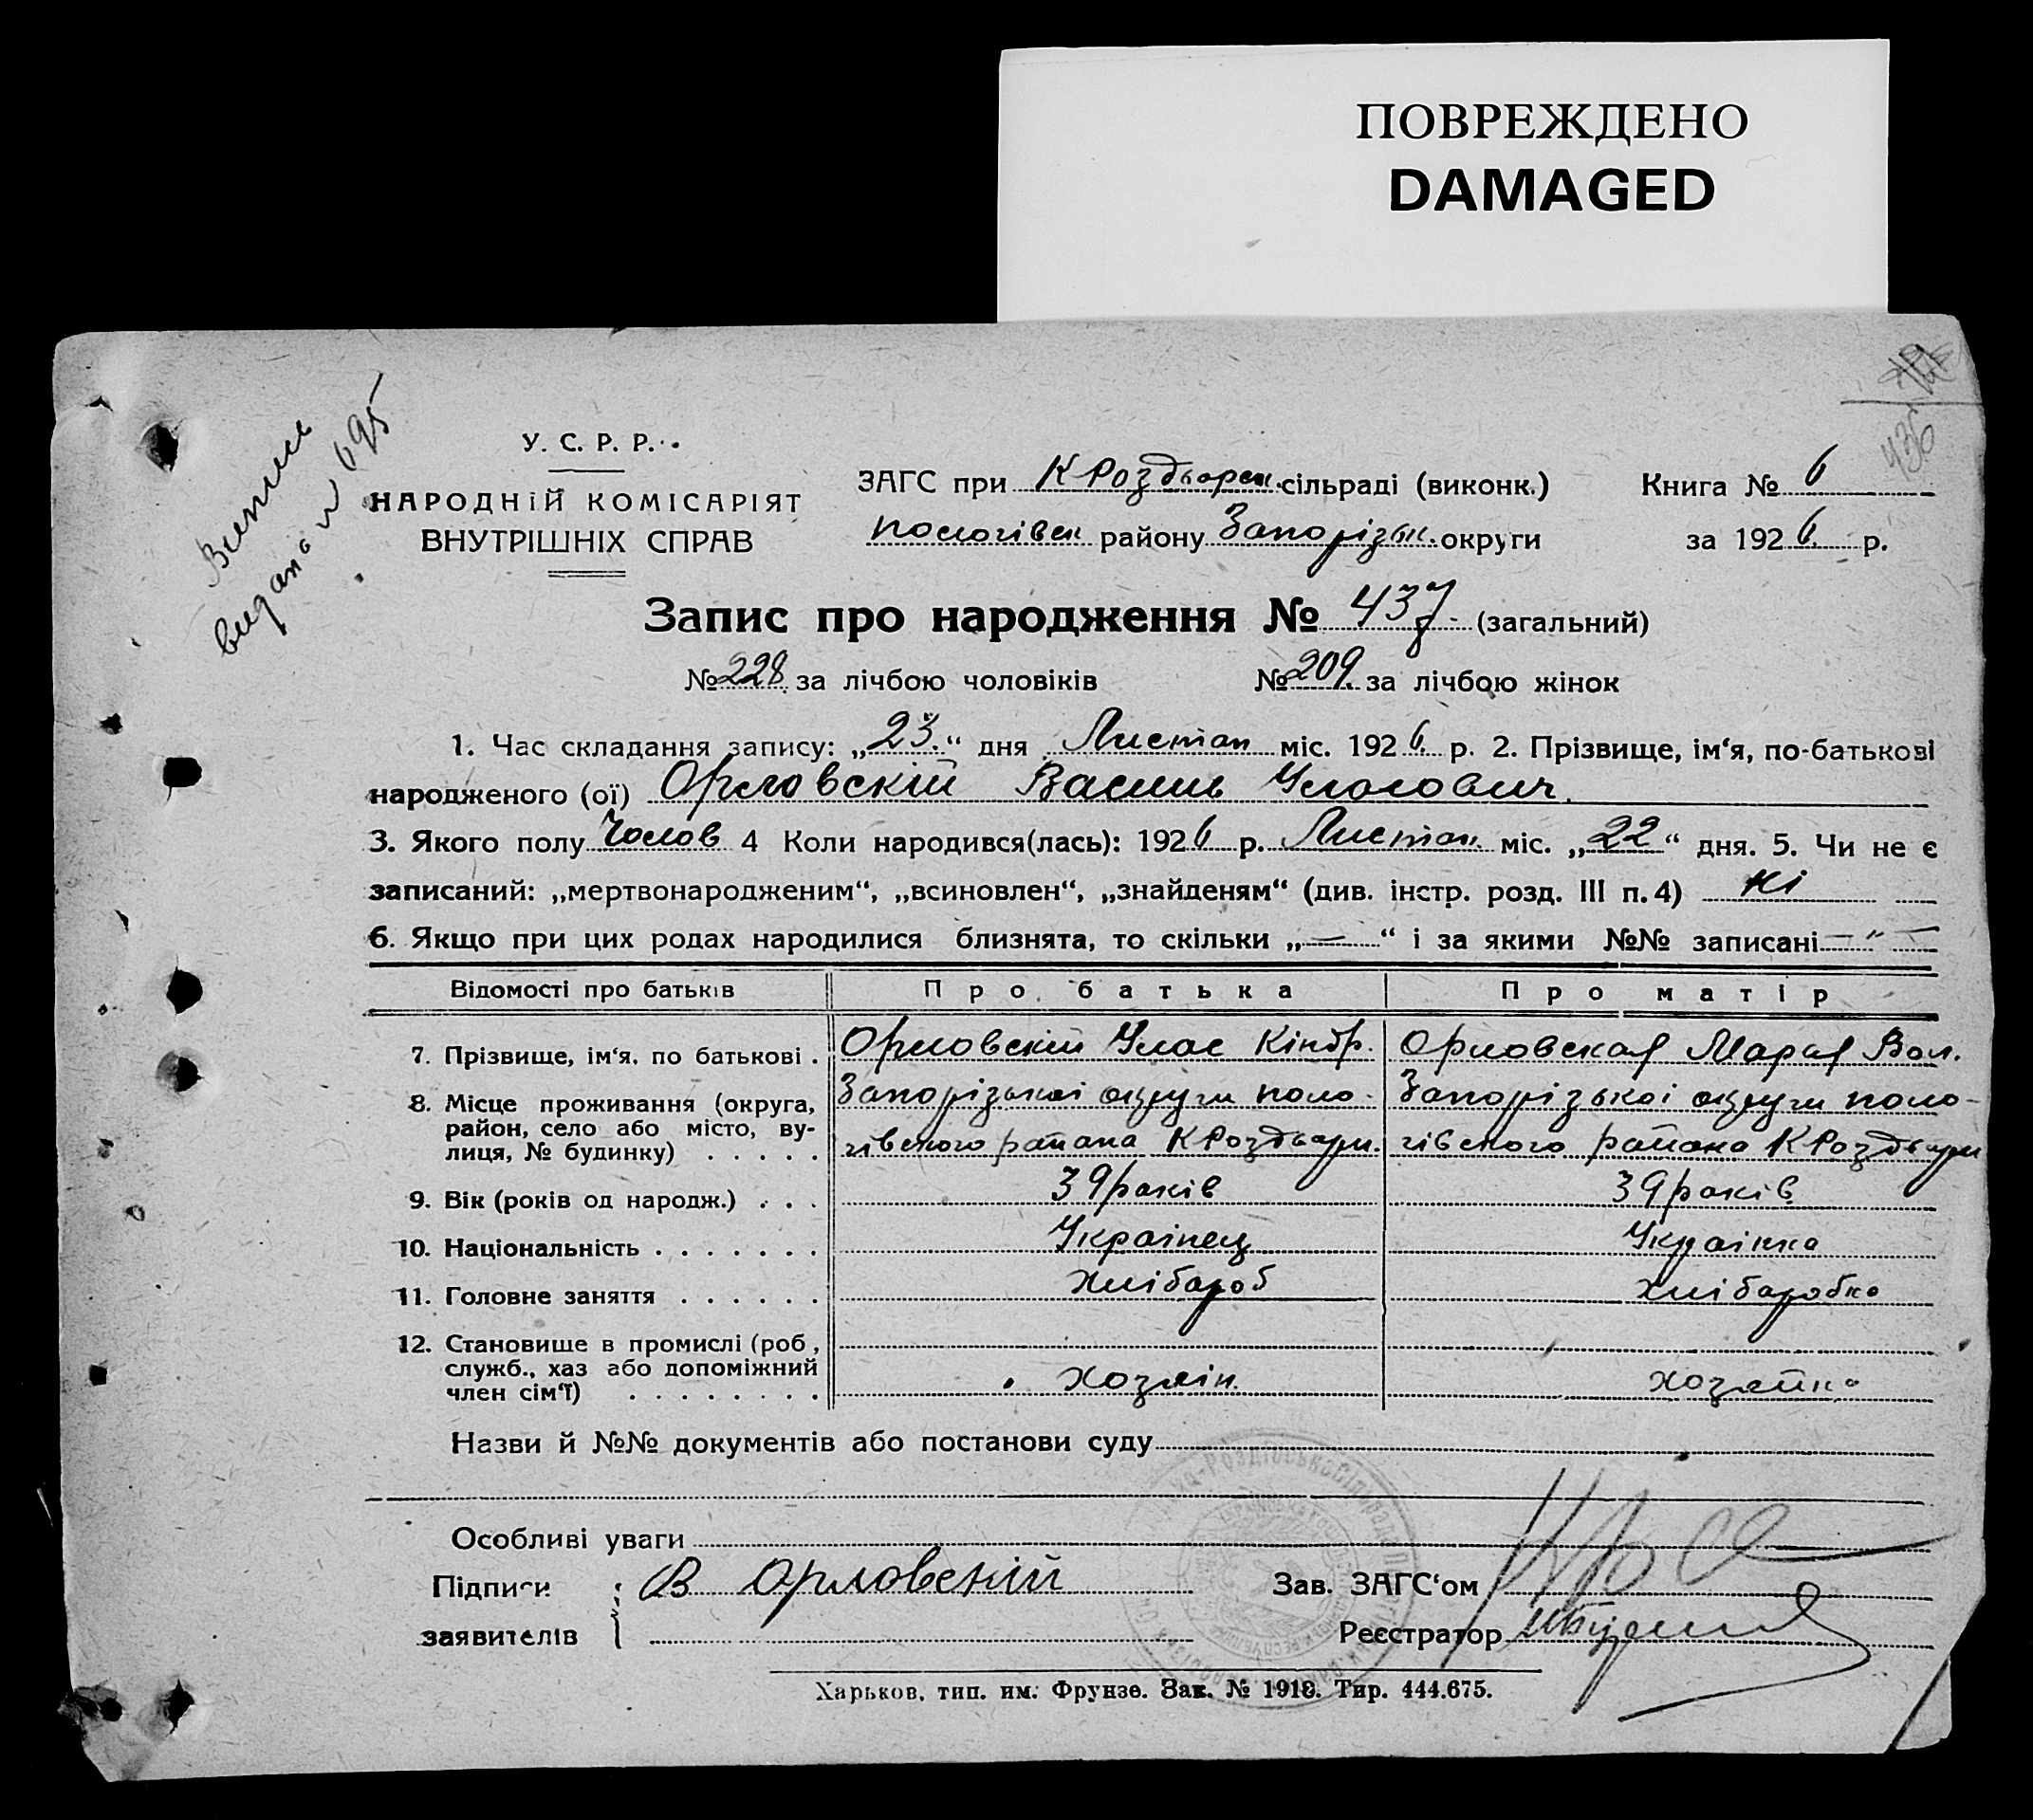 ПОВРЕЖДЕНО
DAMAGED
436
Випись
видань № 695
У. С. Р. Р.
НАРОДНІЙ КОМІСАРІЯТ
ВНУТРІШНІХ СПРАВ
ЗАГС при К Роздворск. сільраді (виконк.)
Пологівск району Запоріжж. округи
Книга № 6
за 1926 р.
Запис про народження № 437 (загальний)
№ 228 за лічбою чоловіків № 209 за лічбою жінок
1. Час складання запису: „23.“ дня Листоп міс. 1926 р. 2. Прізвище, ім‘я, по-батькові
народженого (ої) Орловскій Василь Уласович.
3. Якого полу Чолов 4 Коли народився(лась): 1926 р. Листоп. міс. „22“ дня. 5. Чи не є
записаний: „мертвонародженим“, „всиновлен“, „знайденям“ (див. інстр. розд. III п. 4) Ні
6. Якщо при цих родах народилися близнята, то скільки „—“ і за якими №№ записані — " —
Відомості про батьків Про батька Про матір
7. Прізвище, ім‘я, по батькові . Орловскій Улас Кіндр. Орловская Мария Вол.
8. Місце проживання (округа, Запорізькоі округи поло- Запорізькоі округи поло-
район, село або місто, ву-
лиця, № будинку) . . . . . гівского района К Роздвори. гівского района К Роздвори
9. Вік (років од народж.) . . . 39 років 39 років
10. Національність . . . . . . . Украінец Украінка
11. Головне заняття . . . . . . Хлібороб Хлібаробка
12. Становище в промислі (роб,
служб., хаз або допоміжний
член сім‘ї) . . . . . . . . Хозяін. хозяйка
Назви й №№ документів або постанови суду
Особливі уваги
Підписи В Орловскій Зав. ЗАГС‘ом
заявителів Реєстратор
Харьков, тип. им. Фрунзе. Зак. № 1918. Тир. 444.675.